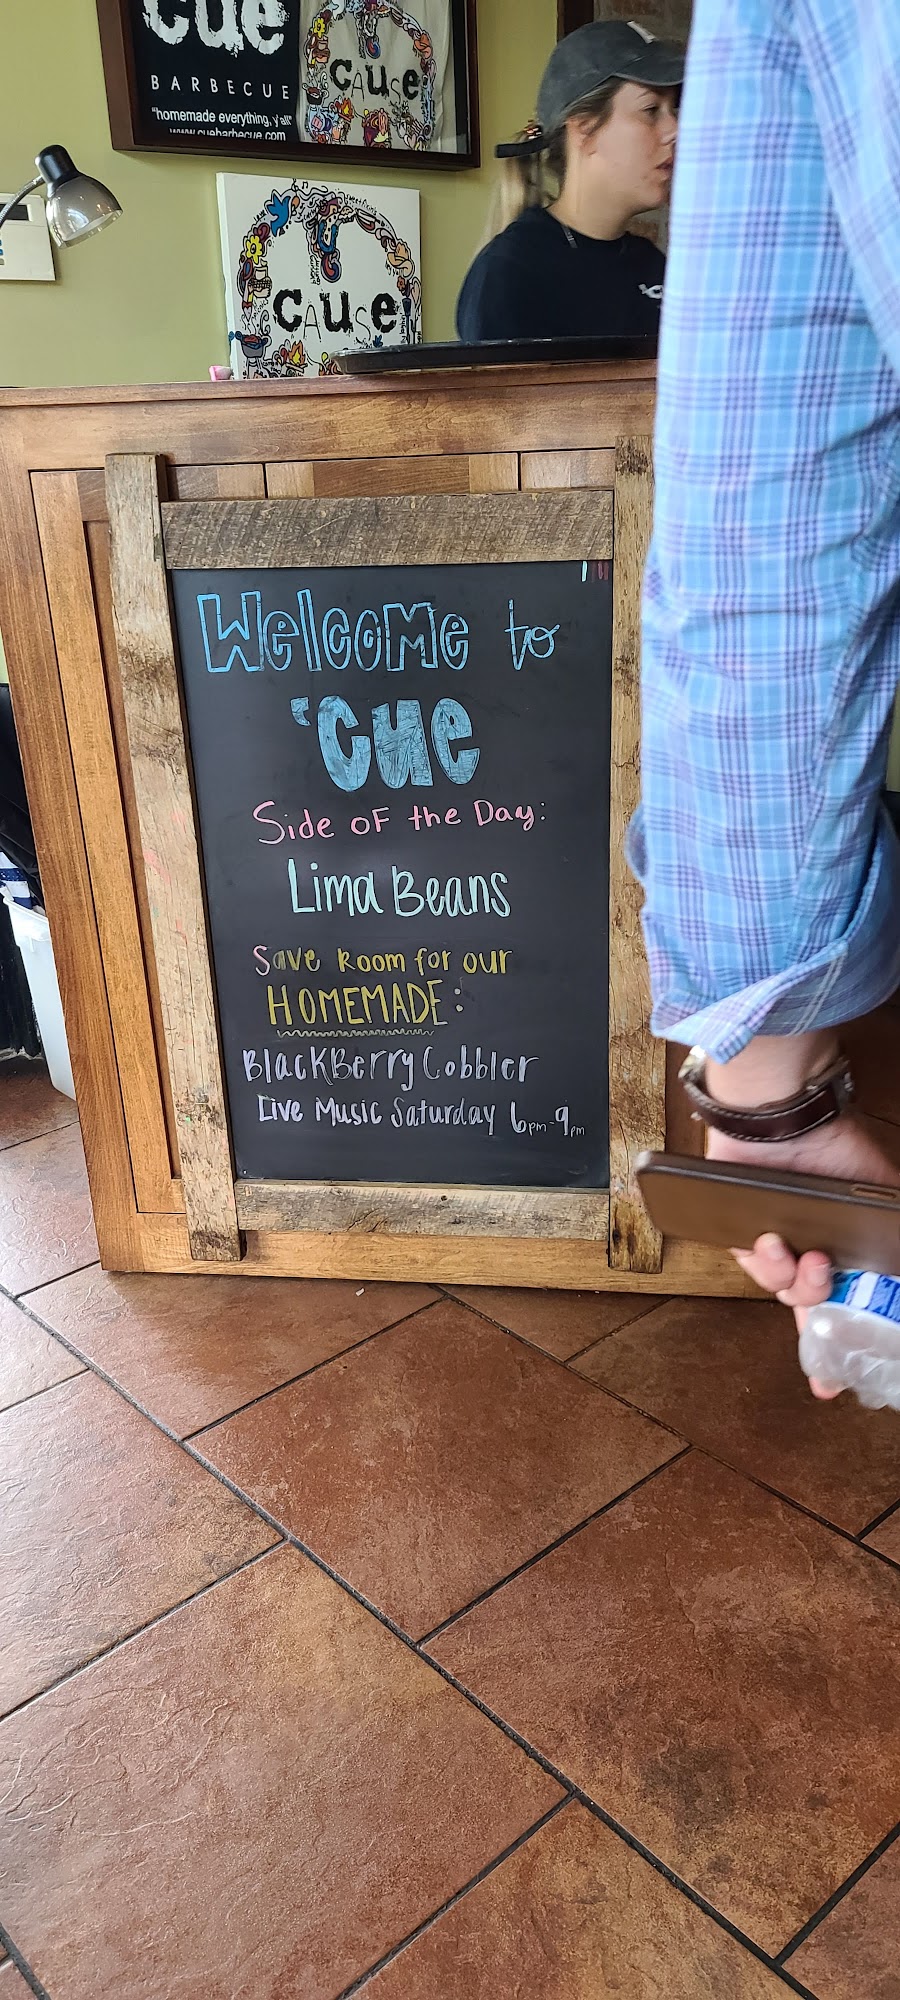 cue
BARBECUE
"homemade everything, y'all"
www.cuebarbecue.com
cAuse
cAuse
Welcome to
'Cue
Side of the Day:
Lima Beans
Save Room for our
HOMEMADE:
BlackBerry Cobbler
Live Music Saturday 6pm-9pm